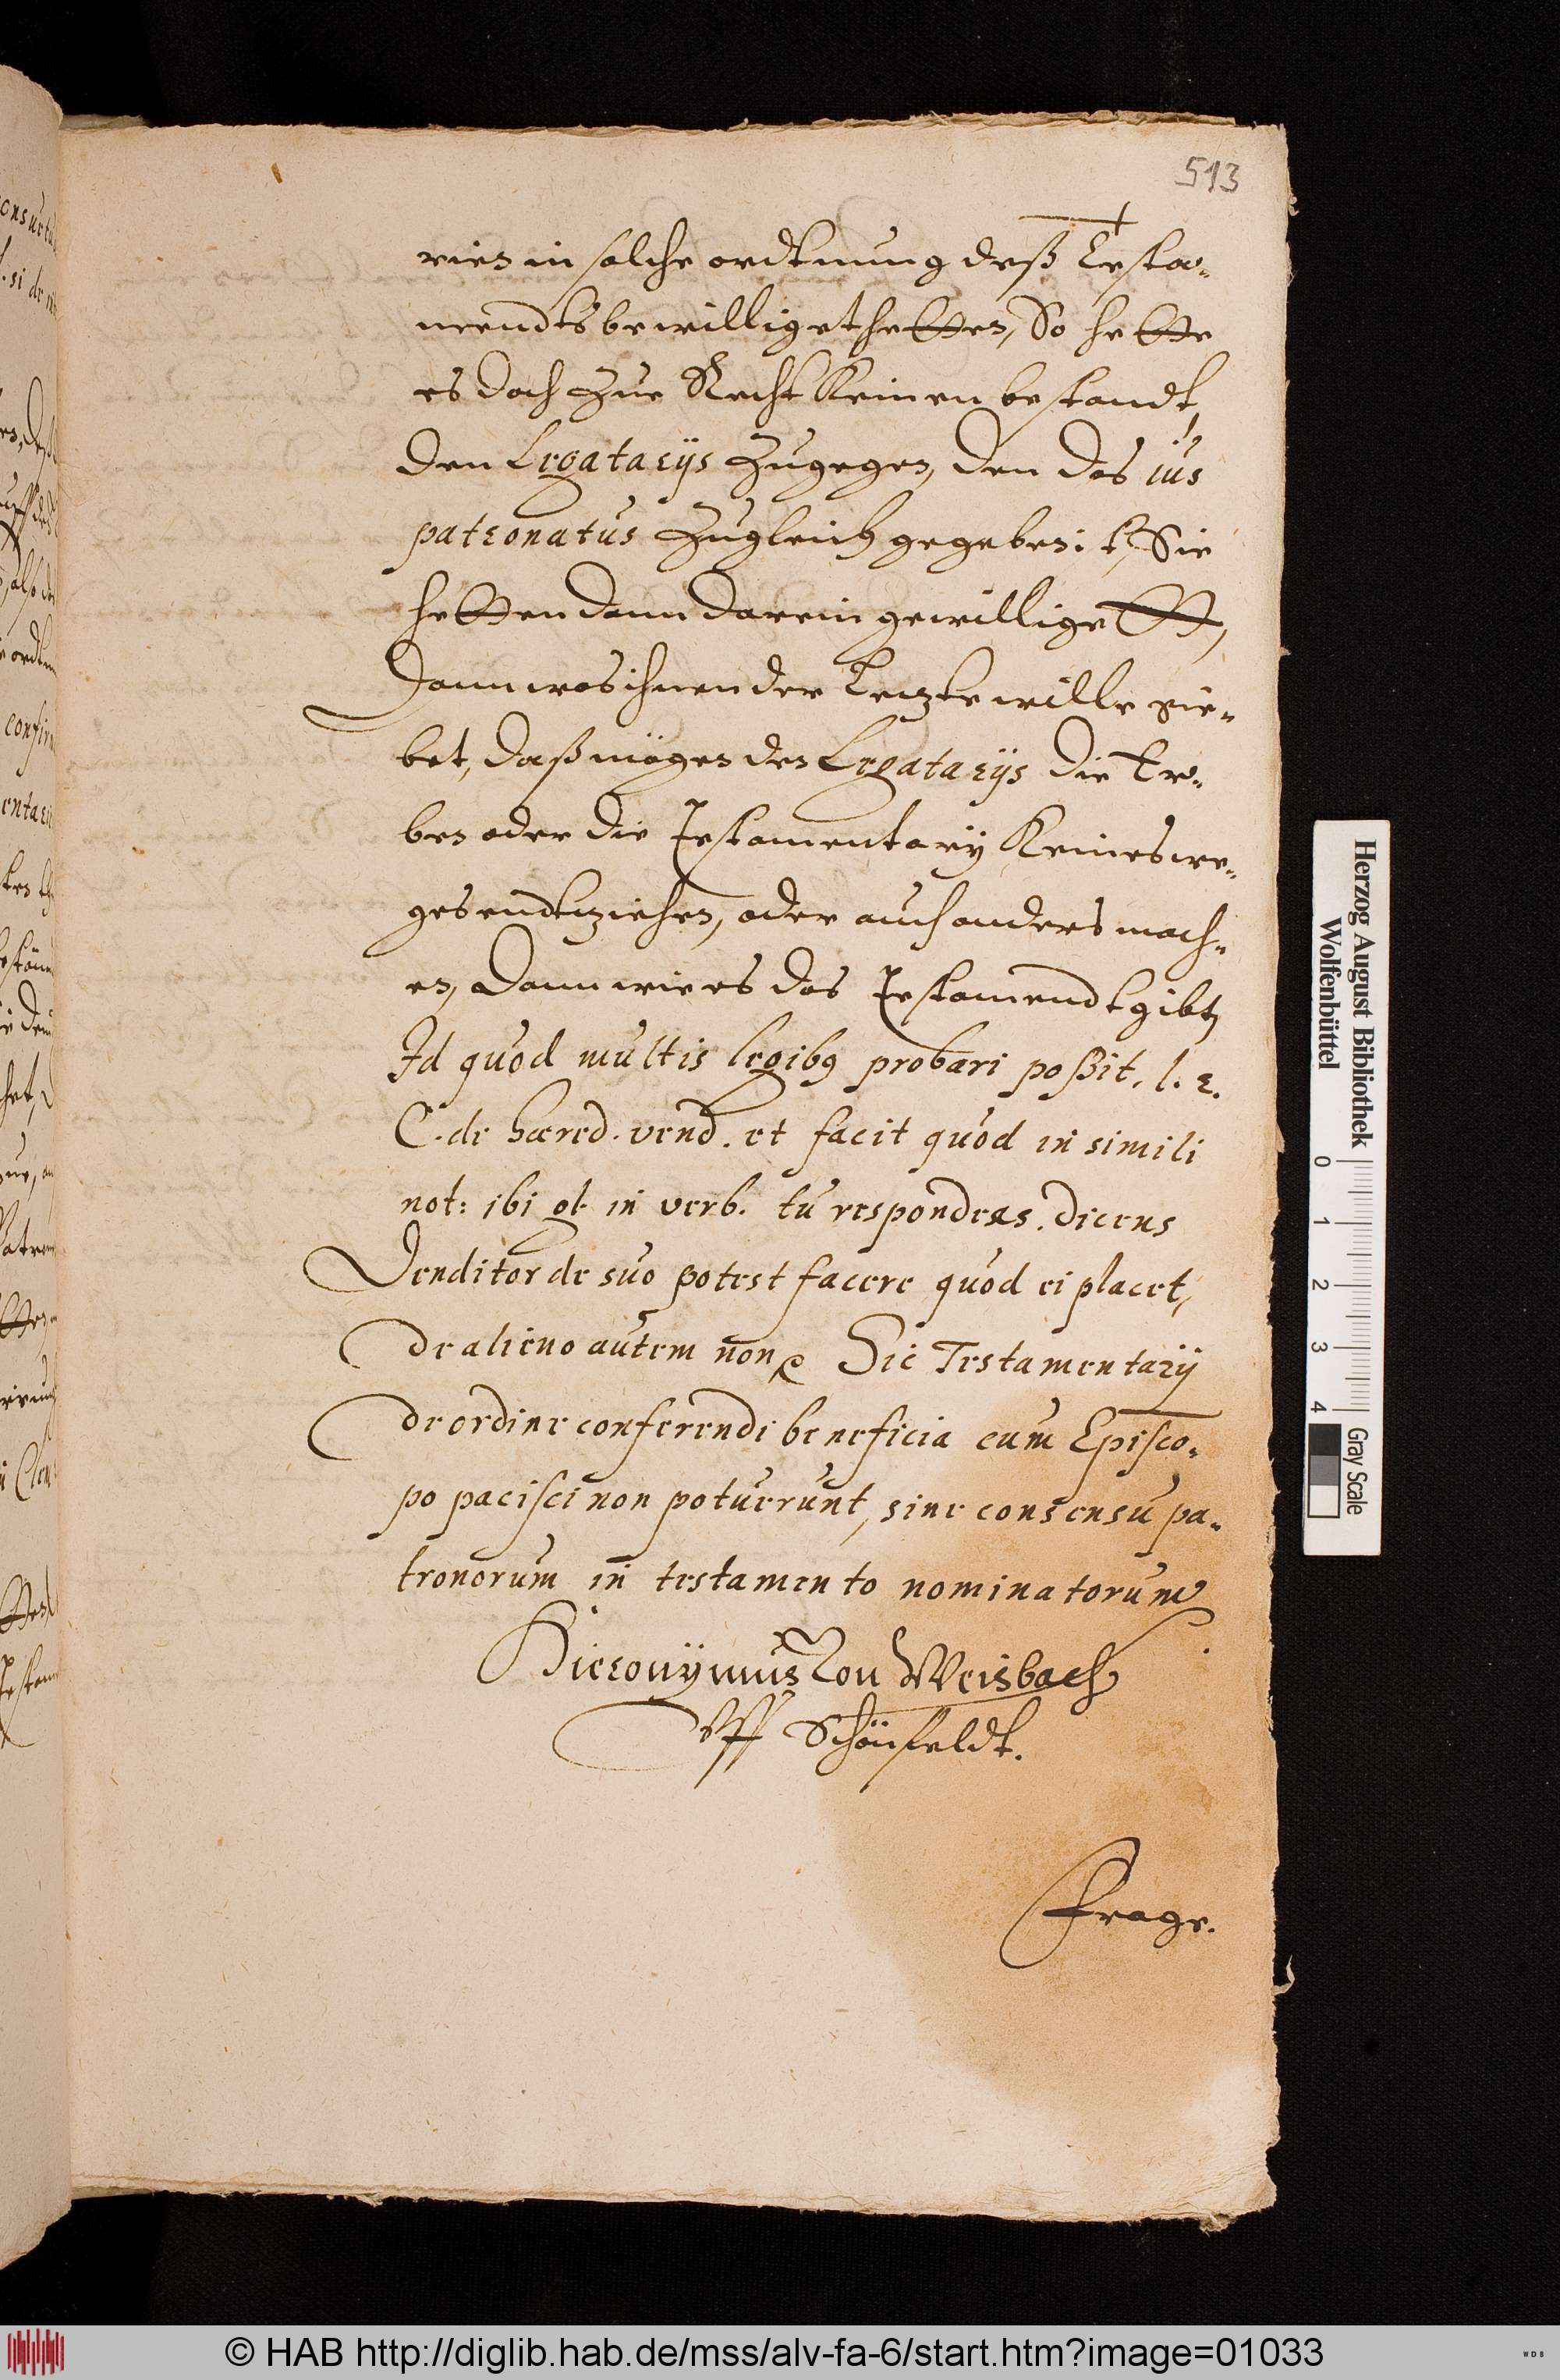 513
rien in solche ordtnung deß Testa-
mendts bewilliget hetten, So hette
es doch zue Recht keinen bestandt,
den Legatarijs zugegen, den das ius
patronatus zugleich gegeben ist, Sie
hetten dann darein gewilligett,
Dann was ihnen der Letzte wille gie-
bet, daß mögen den Legatarijs die Er-
ben oder die Testamentarij Keineswe-
ges endtziehen, oder auch anders mach-
en, Dann wie es das Testamendt gibt,
Id quod multis legibg probari poßit, l. 2.
C. de hæred. vend. et facit quod in simili
not: ibi gl. in verb. tu respondeas. dicens
Venditor de suo potest facere quod ei placet,
de alieno autem non, Sic Testamentarij
de ordine conferendi beneficia cum Episco-
po pacisci non potuerunt, sine consensu pa-
tronorum in testamento nominatorum
Hieronÿmus von Weisbach
Vff Schönfeldt.
Frage.
Herzog August Bibliothek
Wolfenbüttel
0 1 2 3 4
Gray Scale
© HAB http://diglib.hab.de/mss/alv-fa-6/start.htm?image=01033
WDB